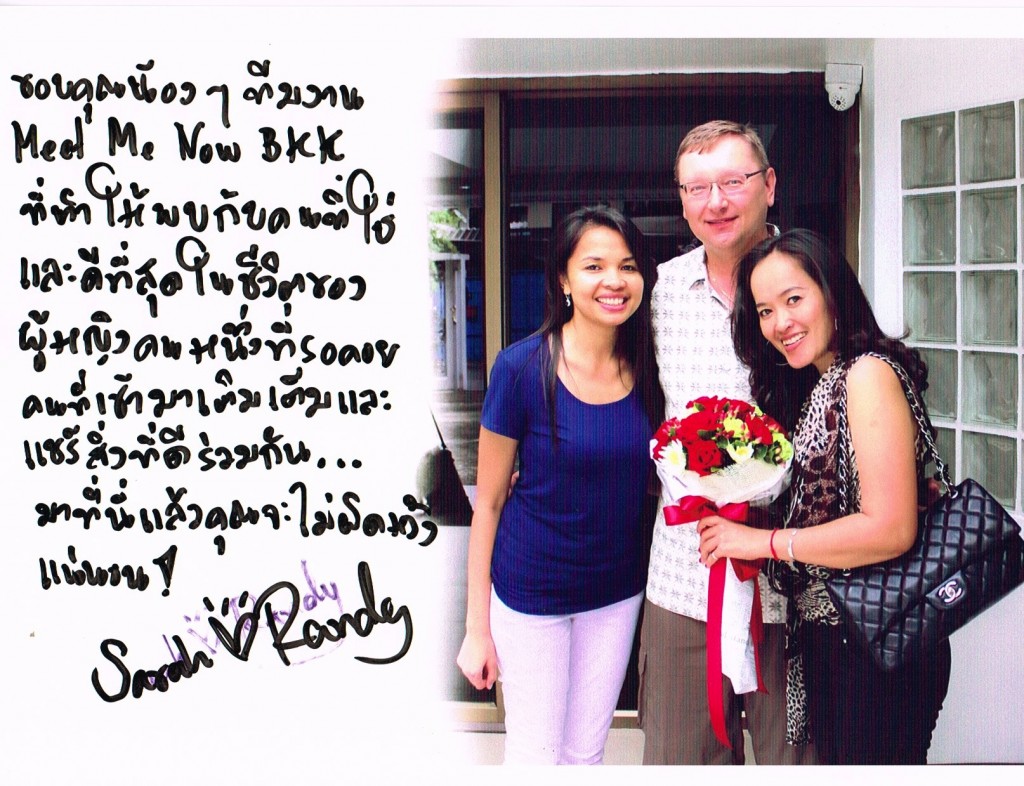 ขอบคุณน้อง ๆ ทีมงาน
Meet Me Now BKK
ที่ทำให้พบกับคนที่ใช่
และดีที่สุดในชีวิตของ
ผู้หญิงคนหนึ่งที่รอคอย
คนที่เข้ามาเติมเต็มและ
แชร์สิ่งที่ดีร่วมกัน...
มาที่นี่แล้วคุณจะไม่ผิดหวัง
แน่นอน!
Sarah ♡ Randy